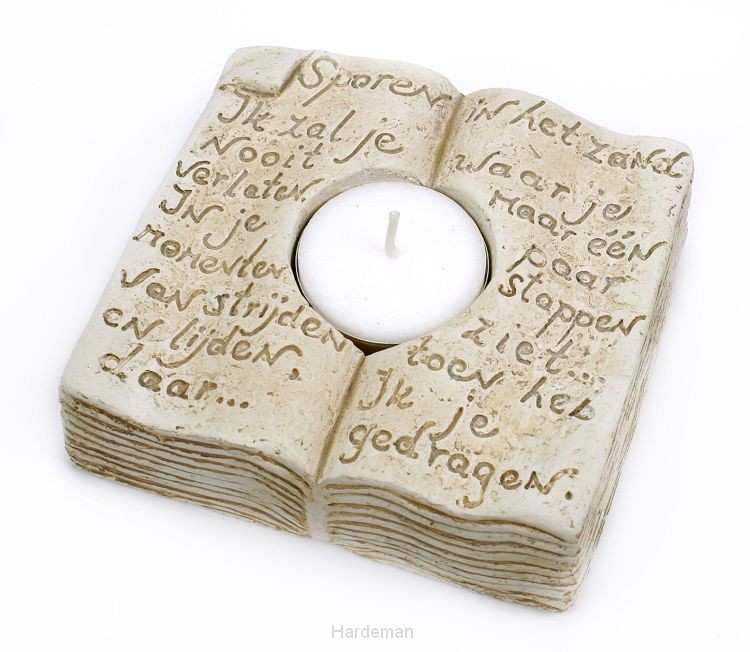 Sporen in het zand
Ik zal je
nooit
verlaten.
In je
momenten
van strijden
en lijden.
daar...
waar je
maar één
paar
stappen
ziet...
toen heb
Ik je
gedragen.
Hardeman